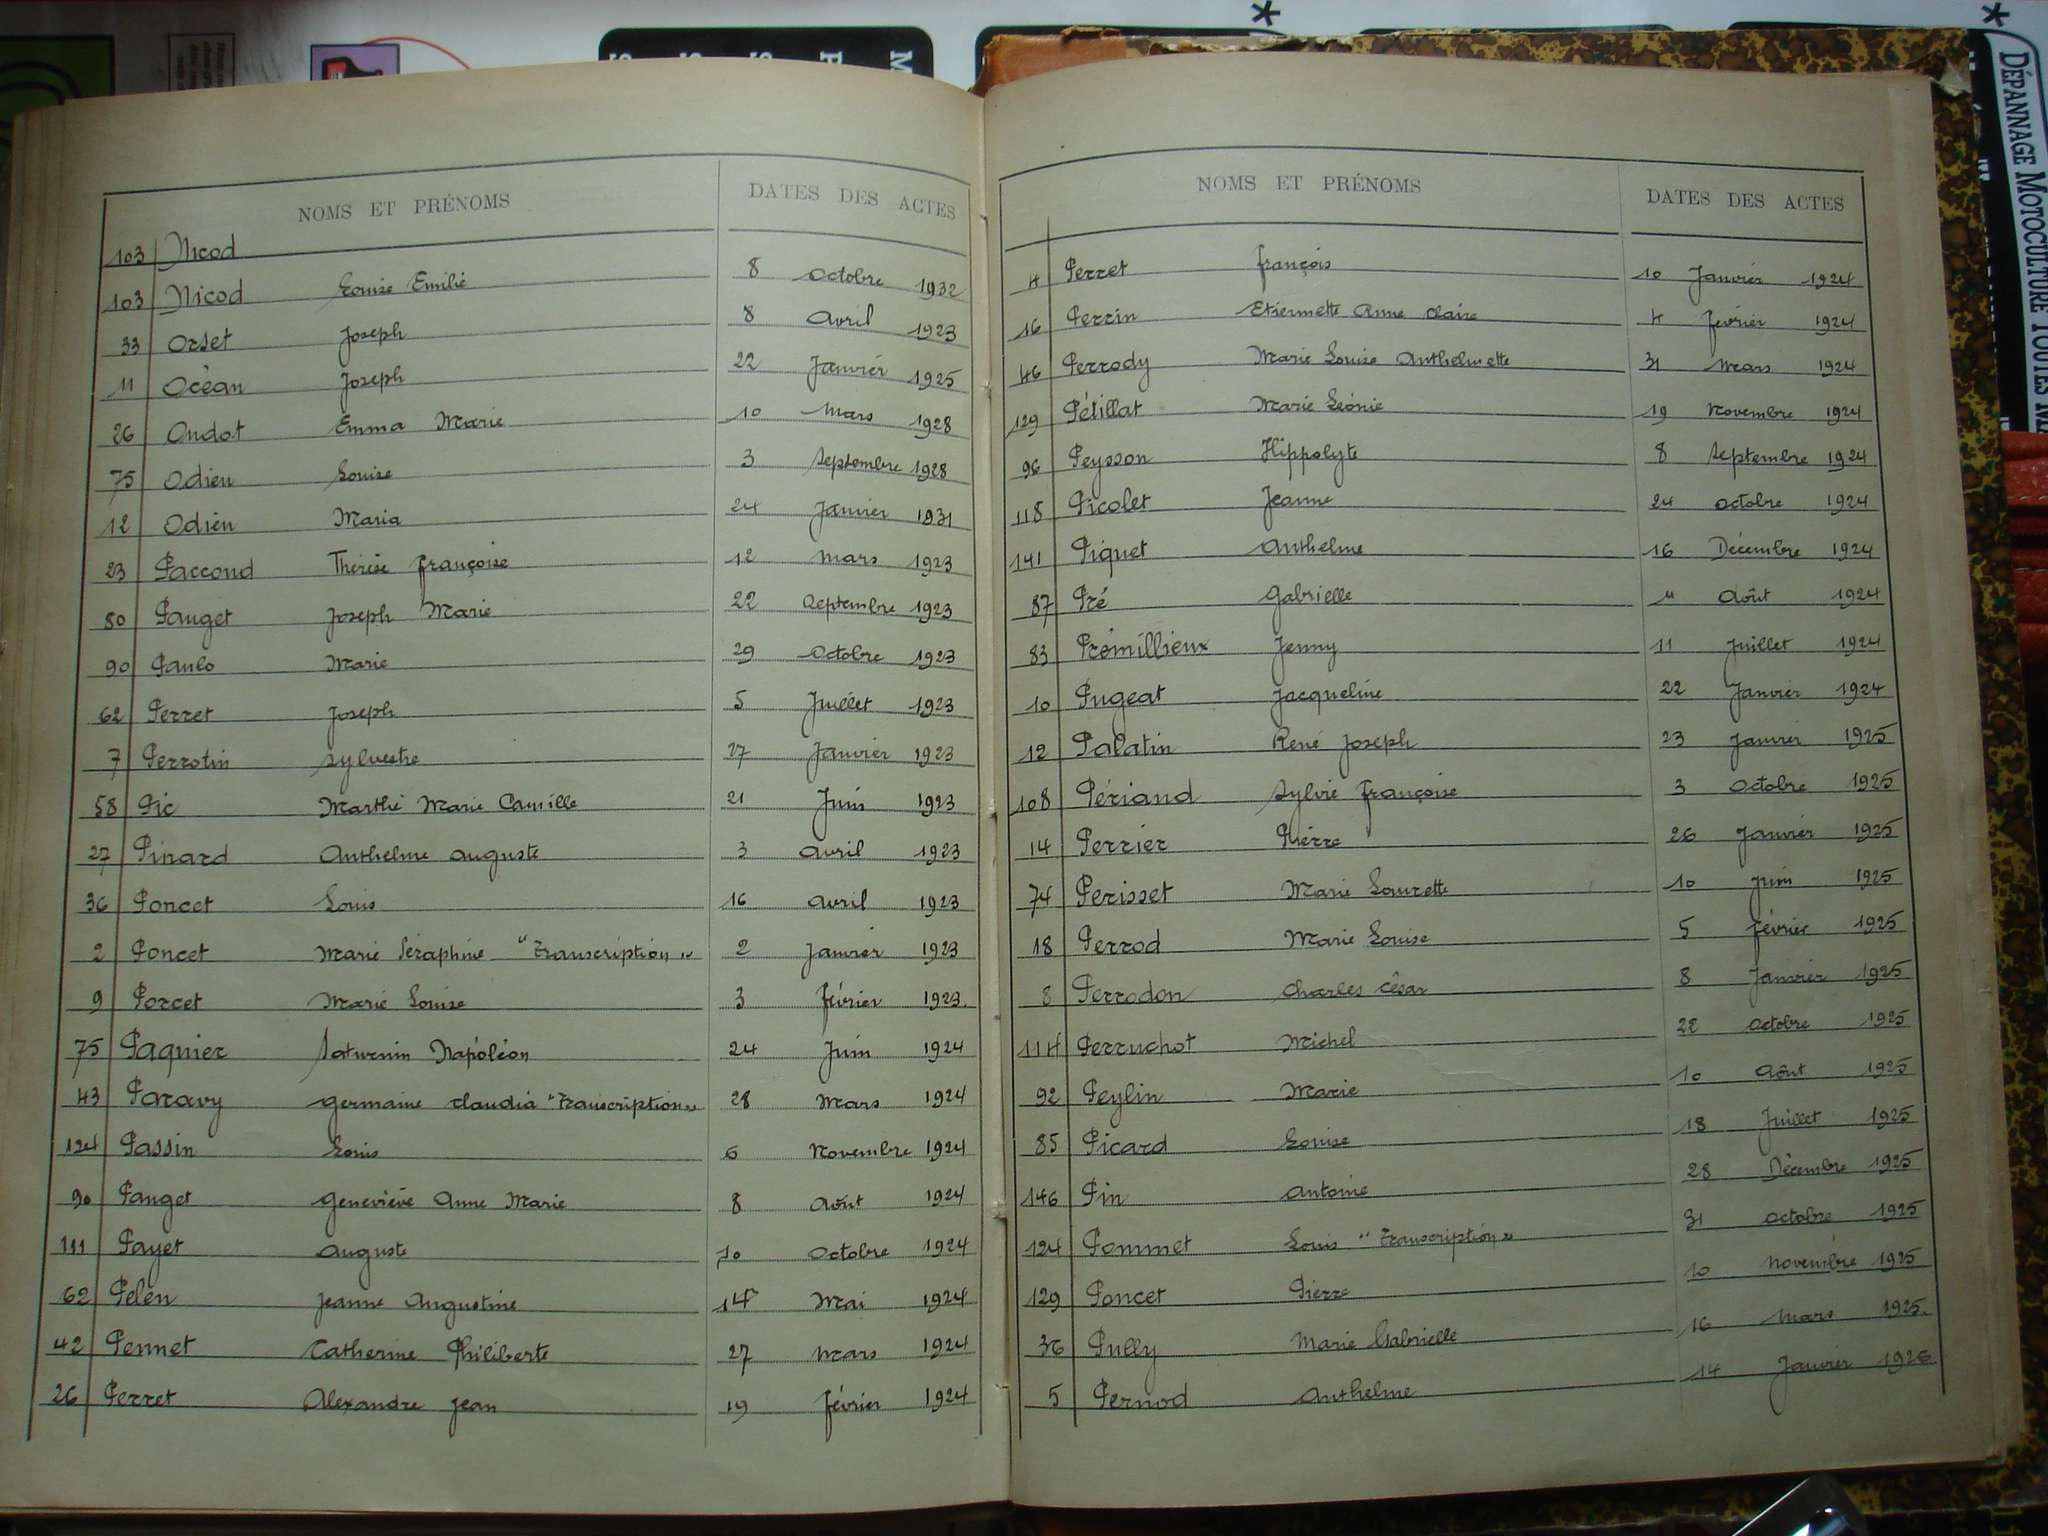 DÉPANNAGE MOTOCULTURE TOUTES
NOMS ET PRÉNOMS DATES DES ACTES
103 Nicod
103 Nicod Louise Emilie 8 Octobre 1932
33 Orset Joseph 8 Avril 1923
11 Océan Joseph 22 Janvier 1925
26 Oudot Emma Marie 10 Mars 1928
75 Odien Louise 3 Septembre 1928
12 Odien Maria 24 Janvier 1931
23 Paccond Thérèse Françoise 12 Mars 1923
80 Pauget Joseph Marie 22 Septembre 1923
90 Paulo Marie 29 Octobre 1923
62 Perret Joseph 5 Juillet 1923
7 Perrotin Sylvestre 27 Janvier 1923
58 Pic Marthe Marie Camille 21 Juin 1923
27 Pinard Anthelme Auguste 3 Avril 1923
36 Poncet Louis 16 Avril 1923
2 Poncet Marie Séraphine "Transcription" 2 Janvier 1923
9 Porcet Marie Louise 3 Février 1923.
75 Pagnier Saturnin Napoléon 24 Juin 1924
43 Paravy Germaine Claudia "Transcription" 28 Mars 1924
124 Passin Louis 6 Novembre 1924
90 Pauget Geneviève Anne Marie 8 Août 1924
111 Payet Auguste 10 Octobre 1924
62 Pelen Jeanne Augustine 14 Mai 1924
42 Pennet Catherine Philiberte 27 Mars 1924
26 Perret Alexandre Jean 19 Février 1924
NOMS ET PRÉNOMS DATES DES ACTES
4 Perret François 10 Janvier 1924
16 Perrin Etiennette Anne Claire 4 Février 1924
46 Perrody Marie Louise Anthelmette 31 Mars 1924
129 Pétillat Marie Léonie 19 Novembre 1924
96 Peysson Hippolyte 8 Septembre 1924
118 Picolet Jeanne 24 Octobre 1924
141 Piquet Anthelme 16 Décembre 1924
87 Pré Gabrielle Août 1924
83 Prémillieux Jenny 11 Juillet 1924
10 Pugeat Jacqueline 22 Janvier 1924
12 Palatin René Joseph 23 Janvier 1925
108 Périand Sylvie Françoise 3 Octobre 1925
14 Perrier Pierre 26 Janvier 1925
74 Perisset Marie Laurette 10 Juin 1925
18 Perrod Marie Louise 5 Février 1925
8 Perrodon Charles César 8 Janvier 1925
114 Perruchot Michel 22 Octobre 1925
92 Peylin Marie 10 Août 1925
85 Picard Louise 18 Juillet 1925
146 Pin Antoine 28 Décembre 1925
124 Pommet Louis "Transcription" 31 Octobre 1925
129 Poncet Pierre 10 Novembre 1925
36 Pully Marie Gabrielle 16 Mars 1925.
5 Pernod Anthelme 14 Janvier 1926